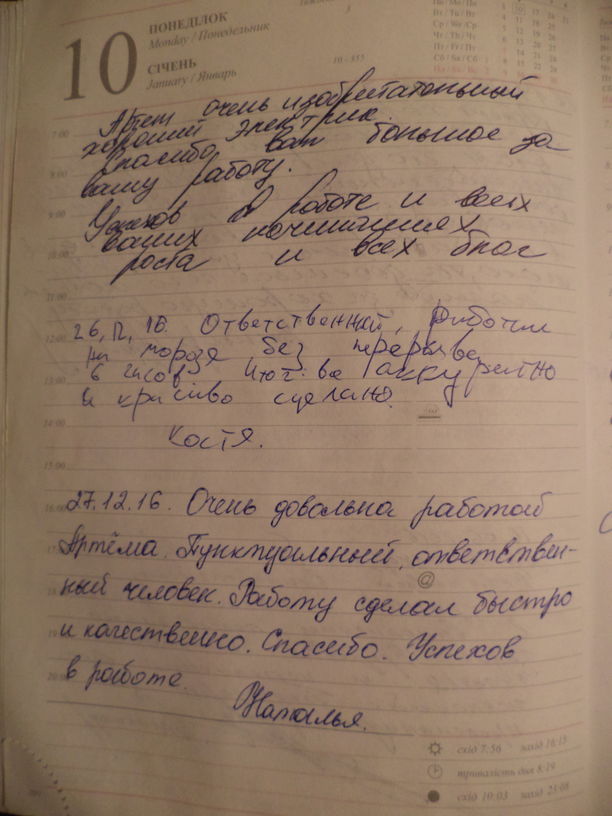 10
ПОНЕДІЛОК
Monday / Понедельник
СІЧЕНЬ
January / Январь
3
10 - 355
7:00
Артем очень изобретательный
хороший электрик.
Спасибо вам большое за
8:00
вашу работу.
9:00
Успехов в работе и всех
ваших начинаниях
10:00
роста и всех благ
11:00
12:00
26,12,16. Ответственный, работал
на морозе без перерыва
13:00
6 часов. аккуратно
и красиво сделано.
14:00
Костя.
15:00
16:00
27.12.16. Очень довольна работой
Артёма. Пунктуальный, ответствен-
ный человек. Работу сделал быстро
@
и качественно. Спасибо. Успехов
в работе.
Наталья.
схід 7:56 захід 16:15
тривалість дня 8:19
схід 19:03 захід 23:08